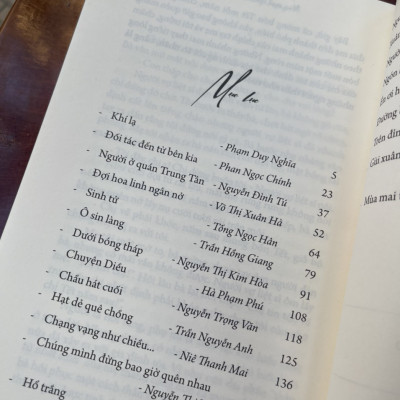 Mục lục
- Khí lạ - Phạm Duy Nghĩa 5
- Đối tác đến từ bên kia - Phan Ngọc Chính 23
- Người ở quán Trung Tân - Nguyễn Đình Tú 37
- Đợi hoa linh ngân nở - Võ Thị Xuân Hà 52
- Sinh tử - Tống Ngọc Hân 64
- Ô sín làng - Trần Hồng Giang 79
- Dưới bóng tháp - Nguyễn Thị Kim Hòa 91
- Chuyện Diều - Hà Phạm Phú 108
- Chầu hát cuối - Nguyễn Trọng Văn 118
- Hạt dẻ quê chồng - Trần Nguyên Anh 125
- Chạng vạng như chiều... - Niê Thanh Mai 136
- Chúng mình đừng bao giờ quên nhau
- Hồ trắng - Nguyễn
Đường
Gái xuân
Mùa mai